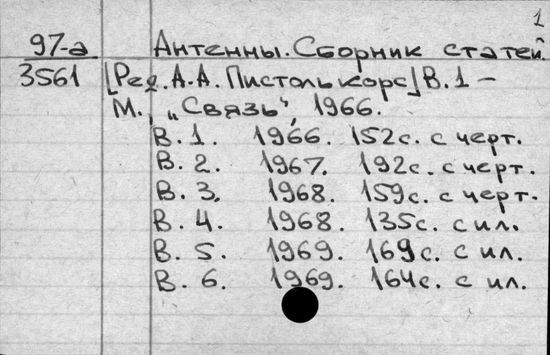 1
97-а Антенны. Сборник статей.
3561 [Ред. А.А. Пистолькорс] В. 1 –
М., „Связь", 1966.
В. 1. 1966. 152с. с черт.
В. 2. 1967. 192с. с черт.
В. 3. 1968. 159с. с черт.
В. 4. 1968. 135с. с ил.
В. 5. 1969. 169с. с ил.
В. 6. 1969. 164с. с ил.